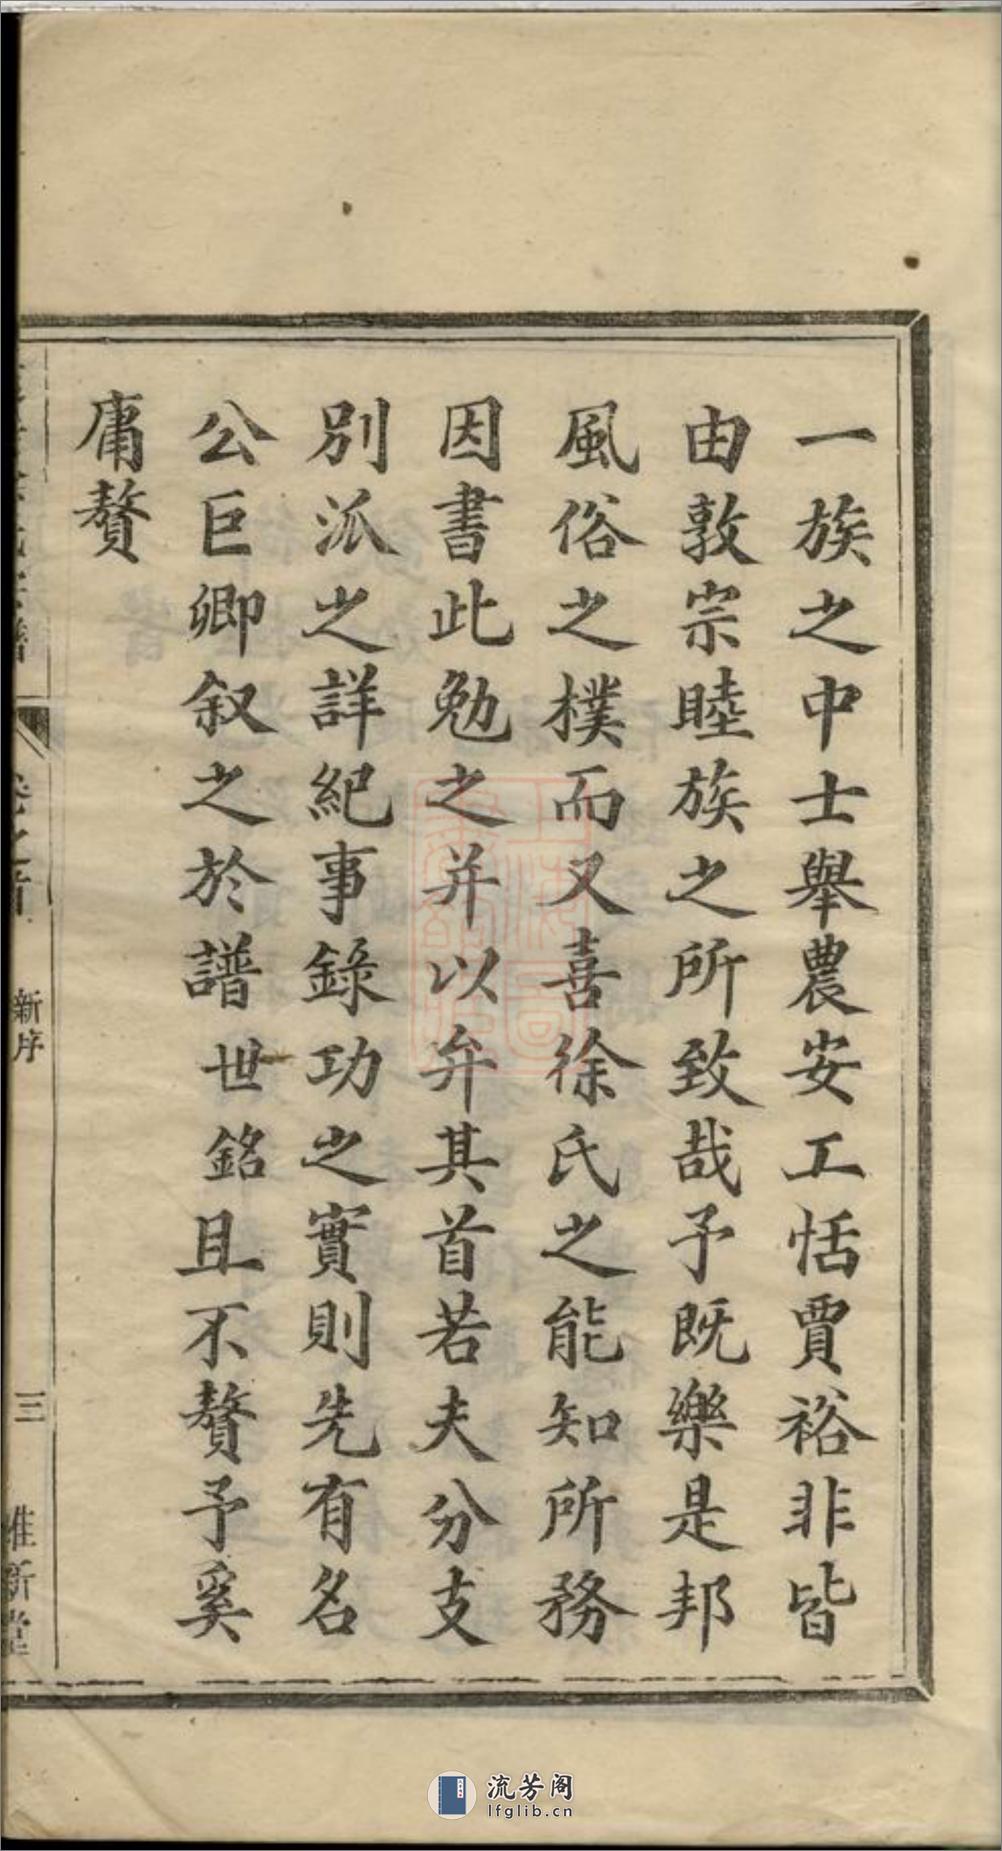 一族之中士舉農安工恬賈裕非皆
由敦宗睦族之所致哉予既樂是邦
風俗之樸而又喜徐氏之能知所務
因書此勉之并以弁其首若夫分支
別派之詳紀事錄功之實則先有名
公巨卿叙之於譜世銘且不贅予奚
庸贅
卷之首
新序
三
維新堂
流芳阁
lfglib.cn